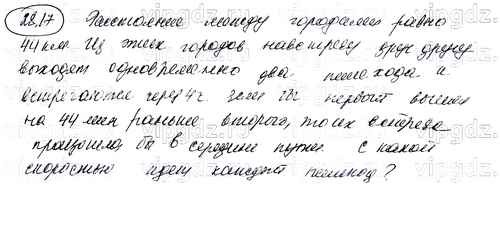 28.17 Расстояние между городами равно
44 км Из этих городов навстречу друг другу
выходят одновременно два пешехода и
встречаются через 4ч если бы первый вышел
на 44 мин раньше второго, то их встреча
произошла бы в середине пути. С какой
скоростью идет каждый пешеход?